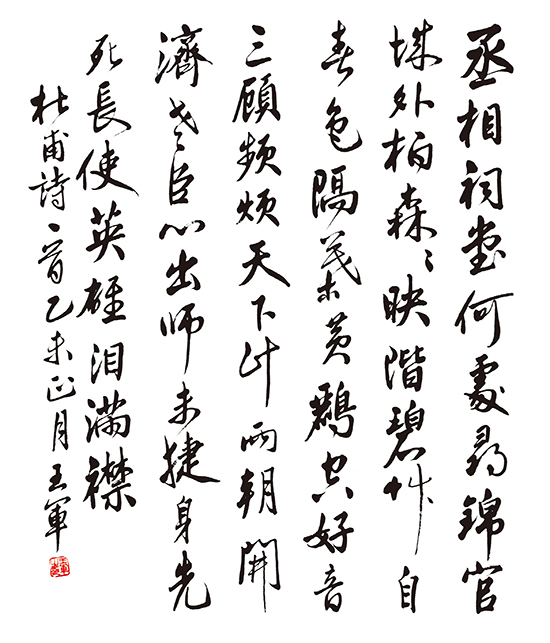 丞相祠堂何處尋錦官
城外柏森〻映階碧草自
春色隔葉黃鸝空好音
三顧頻煩天下計兩朝開
濟老臣心出師未捷身先
死長使英雄泪滿襟
杜甫詩一首乙未正月王軍